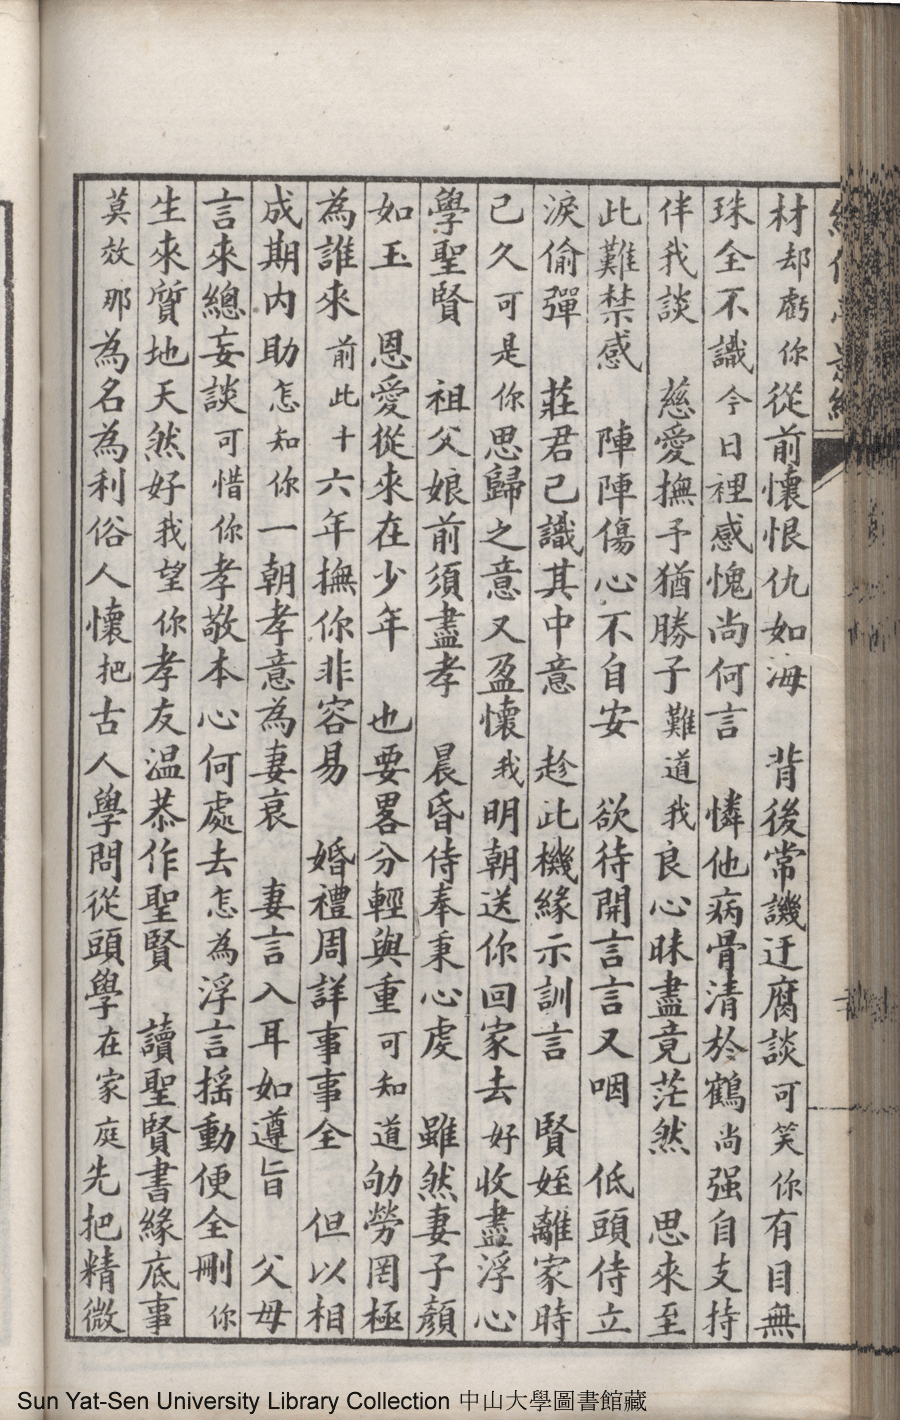 材却虧你從前懷恨仇如海　背後常譏迂腐談可笑你有目無
珠全不識今日裡感愧尚何言　憐他病骨清於鶴尚强自支持
伴我談　慈愛撫予猶勝子難道我良心昧盡竟茫然　思來至
此難禁感　陣陣傷心不自安　欲待開言言又咽　低頭侍立
淚偷彈　莊君已識其中意　趁此機緣示訓言　賢姪離家時
已久可是你思歸之意又盈懷我明朝送你回家去好收盡浮心
學聖賢　祖父娘前須盡孝　晨昏侍奉秉心虔　雖然妻子顏
如玉　恩愛從來在少年　也要畧分輕與重可知道劬勞罔極
為誰來前此十六年撫你非容易　婚禮周詳事事全　但以相
成期内助怎知你一朝孝意為妻衰　妻言入耳如遵旨　父母
言來總妄談可惜你孝敬本心何處去怎為浮言揺動便全刪你
生來質地天然好我望你孝友温恭作聖賢　讀聖賢書緣底事
莫效那為名為利俗人懷把古人學問從頭學在家庭先把精微
Sun Yat-Sen University Library Collection 中山大學圖書館藏